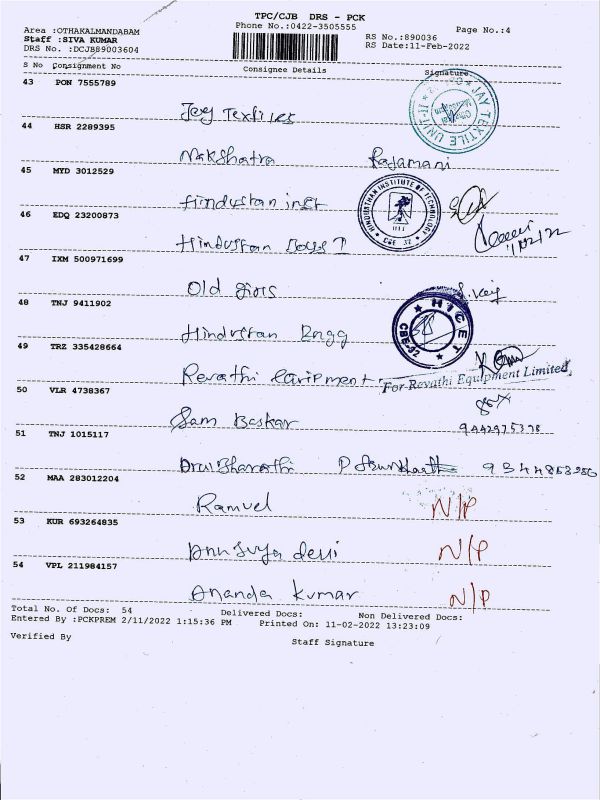 TPC/CJB DRS - PCK
Area :OTHAKALMANDABAM Phone No.:0422-3505555 Page No.:4
Staff :SIVA KUMAR RS No.:890036
DRS No. :DCJB89003604 RS Date:11-Feb-2022
S No Consignment No Consignee Details Signature
43 PON 7555789
Jay Textiles
JAY TEXTILE UNIT-II
44 HSR 2289395
Nakshatra Rajamani
45 MYD 3012529
Hindustan inst
HINDUSTHAN INSTITUTE OF TECHNOLOGY
HIT
CBE 32
46 EDQ 23200873
Hindustan
47 IXM 500971699
Old girls
48 TNJ 9411902
Hindustan Engg
HICET
CBE-32
49 TRZ 335428664
Revathi Equipment
For Revathi Equipment Limited,
50 VLR 4738367
Sam Baskar
51 TNJ 1015117
Bharathi
52 MAA 283012204
Ramvel N/P
53 KUR 693264835
Annsuya devi N/P
54 VPL 211984157
Ananda kumar N/P
Total No. Of Docs: 54 Delivered Docs: Non Delivered Docs:
Entered By :PCKPREM 2/11/2022 1:15:36 PM Printed On: 11-02-2022 13:23:09
Verified By Staff Signature